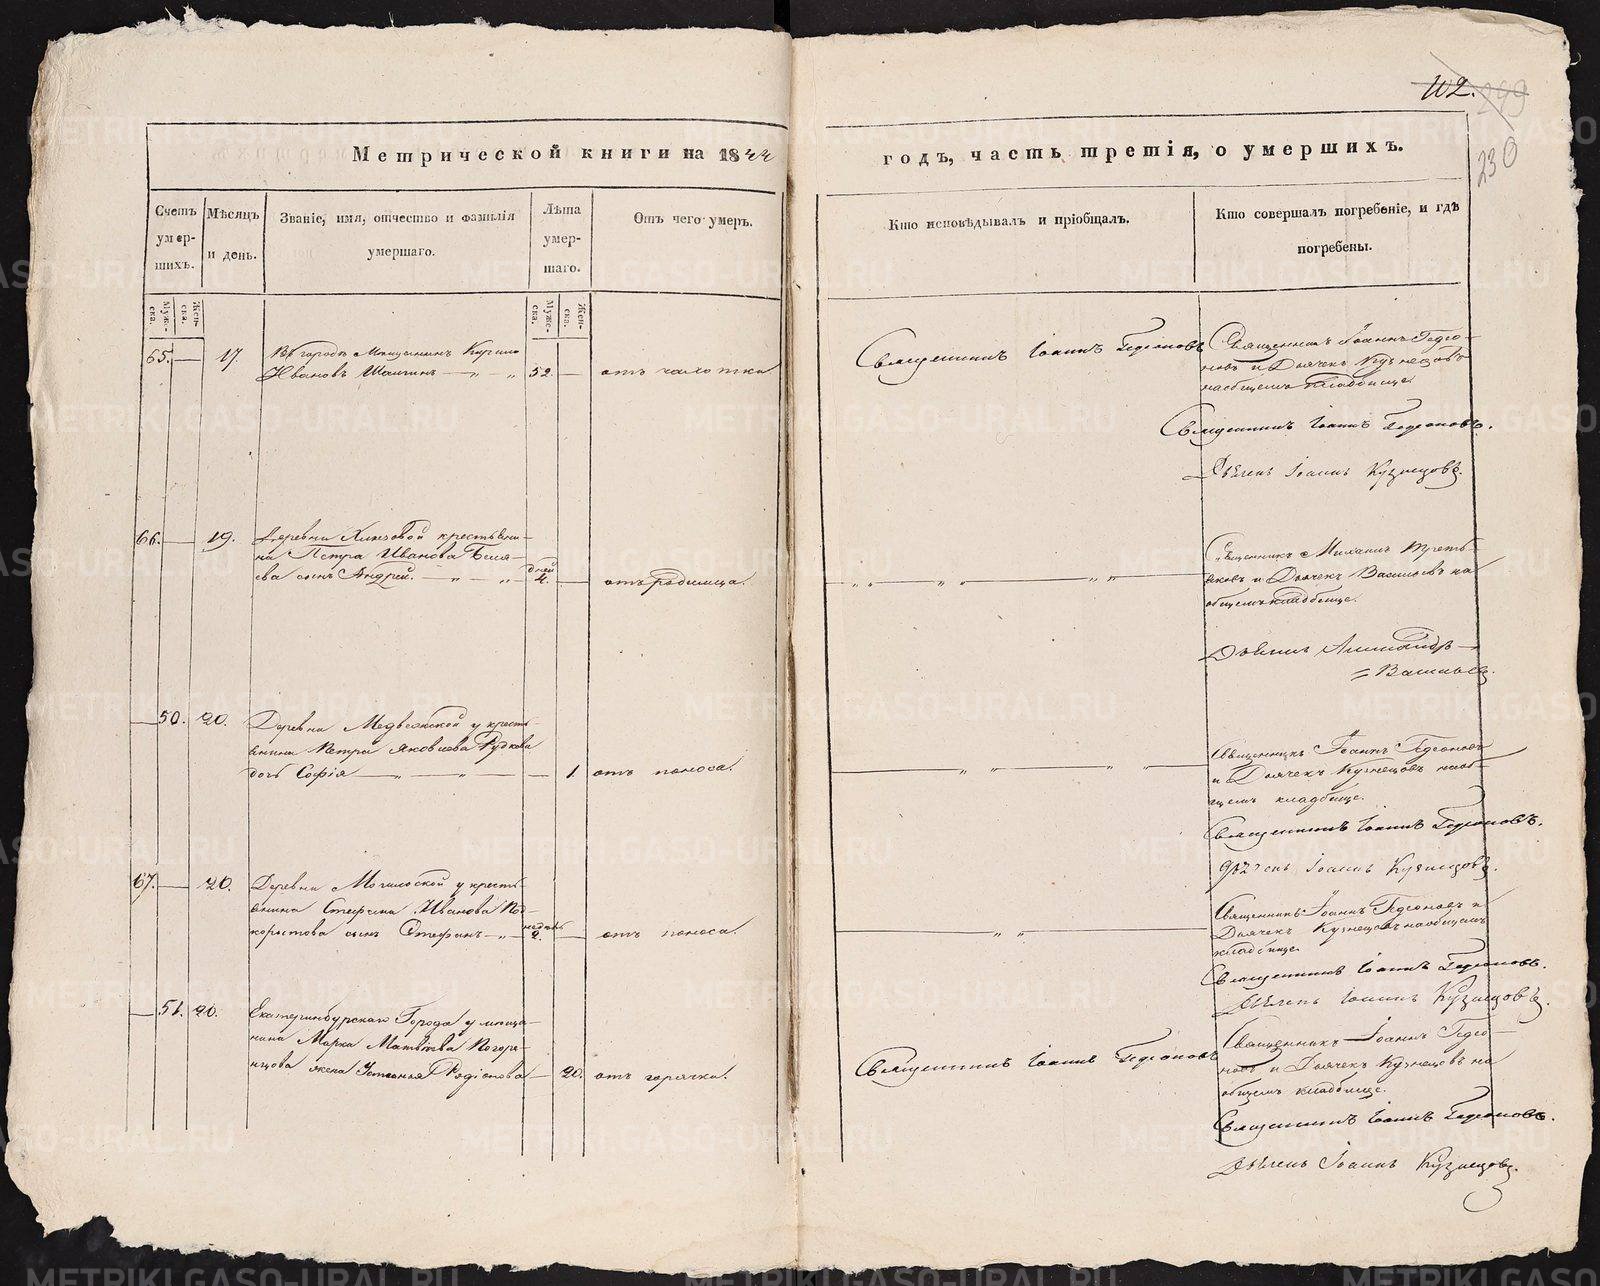 112. 299
230
Метрической книги на 1844
годъ, часть третія, о умершихъ.
Счетъ умер-шихъ.
Мѣсяцъ и день.
Званіе, имя, отчество и фамилія умершаго.
Лѣта умер-шаго.
Отъ чего умеръ.
Кто исповѣдывалъ и пріобщалъ.
Кто совершалъ погребеніе, и гдѣ погребены.
Муже-ска.
Жен-ска.
Муже-ска.
Жен-ска.
65. — 17.
Въ городѣ Мѣщанинъ Кирило
Ивановъ — „ — „ 52. —
отъ чахотки
Священникъ Іоаннъ Гедеоновъ
Священникъ Іоаннъ Гедео-
новъ и Дьячекъ Кузнецовъ
на общемъ кладбище.
Священникъ Іоаннъ Гедеоновъ.
Дьячекъ Іоаннъ Кузнецовъ.
66. — 19.
Деревни крестьяни-
на Петра Иванова
сынъ Андрей. — „ — „ дней 4. —
отъ родимца.
Священникъ Михаилъ Треть-
яковъ и Дьячекъ Васильевъ на
общемъ кладбище.
Дьячекъ Александръ
Васильевъ.
— 50. 20.
Деревни Медвѣдской у кресть-
янина Петра Яковлева Рудкова
дочь Софія — „ — „ — 1.
отъ поноса.
Священникъ Іоаннъ Гедеоновъ
и Дьячекъ Кузнецовъ на об-
щемъ кладбище.
Священникъ Іоаннъ Гедеоновъ.
Дьячекъ Іоаннъ Кузнецовъ.
67. — 20.
Деревни у кресть-
янина Стефана Иванова Под-
корытова сынъ Стефанъ — „ недѣль 2. —
отъ поноса.
Священникъ Іоаннъ Гедеоновъ и
Дьячекъ Кузнецовъ на общемъ
кладбище.
Священникъ Іоаннъ Гедеоновъ.
Дьячекъ Іоаннъ Кузнецовъ.
— 51. 20.
Екатеринбурскаго Города у мѣща-
нина Марка Матвѣева
жена Устинья Родіонова — 20.
отъ горячки.
Священникъ Іоаннъ Гедеоновъ
Священникъ Іоаннъ Гедео-
новъ и Дьячекъ Кузнецовъ на
общемъ кладбище.
Священникъ Іоаннъ Гедеоновъ.
Дьячекъ Іоаннъ Кузнецовъ.
METRIKI.GASO-URAL.RU